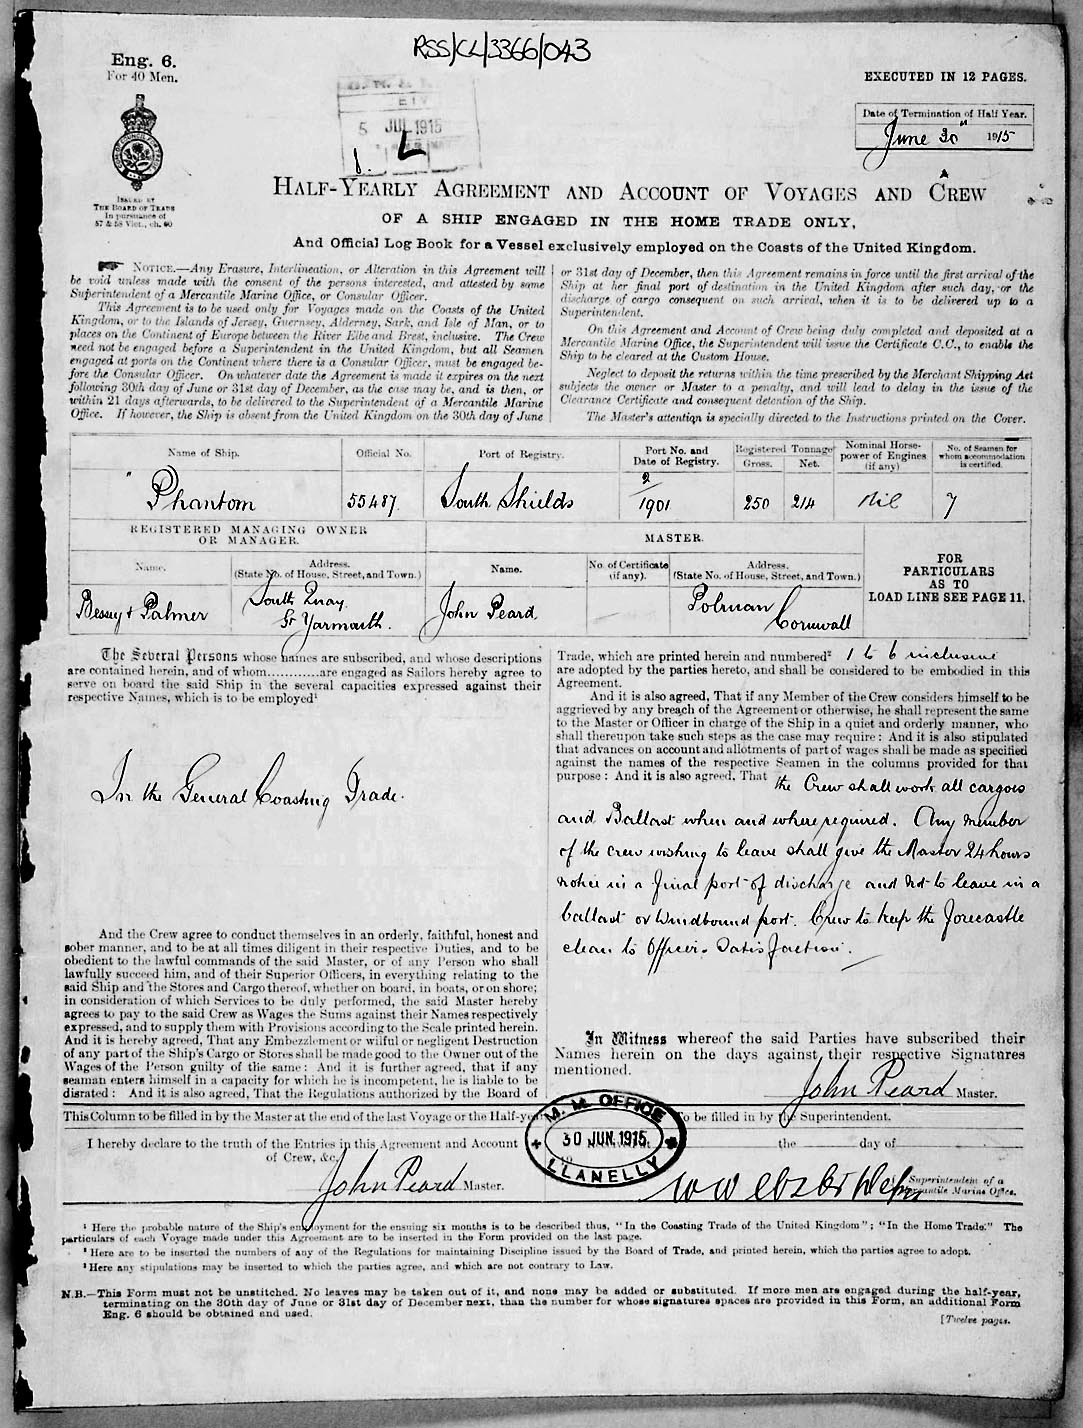 RSS/CL/3366/043
Eng. 6.
For 40 Men.
EXECUTED IN 12 PAGES.
5 JUL 1915
Date of Termination of Half Year.
June 30th 1915
ISSUED BY
THE BOARD OF TRADE
In pursuance of
57 & 58 Vict., ch. 60
HALF-YEARLY AGREEMENT AND ACCOUNT OF VOYAGES AND CREW
OF A SHIP ENGAGED IN THE HOME TRADE ONLY,
And Official Log Book for a Vessel exclusively employed on the Coasts of the United Kingdom.
NOTICE.—Any Erasure, Interlineation, or Alteration in this Agreement will
be void unless made with the consent of the persons interested, and attested by some
Superintendent of a Mercantile Marine Office, or Consular Officer.
This Agreement is to be used only for Voyages made on the Coasts of the United
Kingdom, or to the Islands of Jersey, Guernsey, Alderney, Sark, and Isle of Man, or to
places on the Continent of Europe between the River Elbe and Brest, inclusive. The Crew
need not be engaged before a Superintendent in the United Kingdom, but all Seamen
engaged at ports on the Continent where there is a Consular Officer, must be engaged be-
fore the Consular Officer. On whatever date the Agreement is made it expires on the next
following 30th day of June or 31st day of December, as the case may be, and is then, or
within 21 days afterwards, to be delivered to the Superintendent of a Mercantile Marine
Office. If however, the Ship is absent from the United Kingdom on the 30th day of June
or 31st day of December, then this Agreement remains in force until the first arrival of the
Ship at her final port of destination in the United Kingdom after such day, or the
discharge of cargo consequent on such arrival, when it is to be delivered up to a
Superintendent.
On this Agreement and Account of Crew being duly completed and deposited at a
Mercantile Marine Office, the Superintendent will issue the Certificate C.C., to enable the
Ship to be cleared at the Custom House.
Neglect to deposit the returns within the time prescribed by the Merchant Shipping Act
subjects the owner or Master to a penalty, and will lead to delay in the issue of the
Clearance Certificate and consequent detention of the Ship.
The Master's attention is specially directed to the Instructions printed on the Cover.
Name of Ship. Official No. Port of Registry. Port No. and Date of Registry. Registered Tonnage Gross. Net. Nominal Horse-power of Engines (if any) No. of Seamen for whom accommodation is certified.
"Phantom 55487 South Shields 2/1901 250 214 Nil 7
REGISTERED MANAGING OWNER
OR MANAGER.
MASTER.
Name. Address. (State No. of House, Street, and Town.) Name. No. of Certificate (if any). Address. (State No. of House, Street, and Town.)
Bessey & Palmer South Quay Gt Yarmouth. John Peard Polruan Cornwall
FOR
PARTICULARS
AS TO
LOAD LINE SEE PAGE 11.
The Several Persons whose names are subscribed, and whose descriptions
are contained herein, and of whom............are engaged as Sailors hereby agree to
serve on board the said Ship in the several capacities expressed against their
respective Names, which is to be employed¹
In the General Coasting Trade.
And the Crew agree to conduct themselves in an orderly, faithful, honest and
sober manner, and to be at all times diligent in their respective Duties, and to be
obedient to the lawful commands of the said Master, or of any Person who shall
lawfully succeed him, and of their Superior Officers, in everything relating to the
said Ship and the Stores and Cargo thereof, whether on board, in boats, or on shore;
in consideration of which Services to be duly performed, the said Master hereby
agrees to pay to the said Crew as Wages the Sums against their Names respectively
expressed, and to supply them with Provisions according to the Scale printed herein.
And it is hereby agreed, That any Embezzlement or wilful or negligent Destruction
of any part of the Ship's Cargo or Stores shall be made good to the Owner out of the
Wages of the Person guilty of the same: And it is further agreed, that if any
seaman enters himself in a capacity for which he is incompetent, he is liable to be
disrated: And it is also agreed, That the Regulations authorized by the Board of
Trade, which are printed herein and numbered² 1 to 6 inclusive
are adopted by the parties hereto, and shall be considered to be embodied in this
Agreement.
And it is also agreed, That if any Member of the Crew considers himself to be
aggrieved by any breach of the Agreement or otherwise, he shall represent the same
to the Master or Officer in charge of the Ship in a quiet and orderly manner, who
shall thereupon take such steps as the case may require: And it is also stipulated
that advances on account and allotments of part of wages shall be made as specified
against the names of the respective Seamen in the columns provided for that
purpose: And it is also agreed, That the Crew shall work all cargoes
and Ballast when and where required. Any member
of the crew wishing to leave shall give the Master 24 hours
notice in a final port of discharge and not to leave in a
ballast or Windbound port. Crew to keep the forecastle
clean to Officers Satisfaction.
In Witness whereof the said Parties have subscribed their
Names herein on the days against their respective Signatures
mentioned.
John Peard Master.
This Column to be filled in by the Master at the end of the last Voyage or the Half-year
To be filled in by the Superintendent.
I hereby declare to the truth of the Entries in this Agreement and Account
of Crew, &c.
John Peard Master.
M. M. OFFICE
30 JUN. 1915
LLANELLY
the day of
Superintendent of a
Mercantile Marine Office.
¹ Here the probable nature of the Ship's employment for the ensuing six months is to be described thus, "In the Coasting Trade of the United Kingdom"; "In the Home Trade." The
particulars of each Voyage made under this Agreement are to be inserted in the Form provided on the last page.
² Here are to be inserted the numbers of any of the Regulations for maintaining Discipline issued by the Board of Trade, and printed herein, which the parties agree to adopt.
³ Here any stipulations may be inserted to which the parties agree, and which are not contrary to Law.
N.B.—This Form must not be unstitched. No leaves may be taken out of it, and none may be added or substituted. If more men are engaged during the half-year,
terminating on the 30th day of June or 31st day of December next, than the number for whose signatures spaces are provided in this Form, an additional Form
Eng. 6 should be obtained and used.
[Twelve pages.